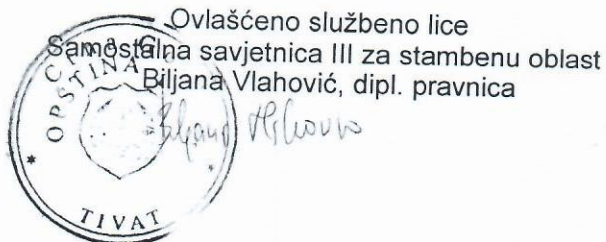 Ovlašćeno službeno lice
Samostalna savjetnica III za stambenu oblast
Biljana Vlahović, dipl. pravnica
Biljana Vlahović
Crna G
OPŠTINA
TIVAT